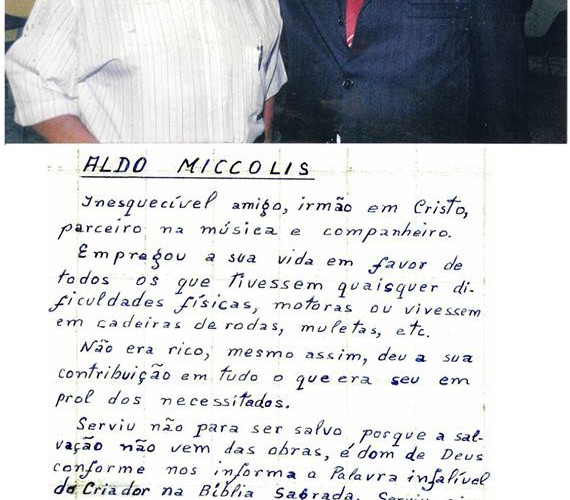 ALDO MICCOLIS
Inesquecível amigo, irmão em Cristo,
parceiro na música e companheiro.
Empregou a sua vida em favor de
todos os que tivessem quaisquer di-
ficuldades físicas, motoras ou vivessem
em cadeiras de rodas, muletas, etc.
Não era rico, mesmo assim, deu a sua
contribuição em tudo o que era seu em
prol dos necessitados.
Serviu não para ser salvo porque a sal-
vação não vem das obras, é dom de Deus
conforme nos informa a Palavra infalível
do Criador na Bíblia Sagrada. Serviu